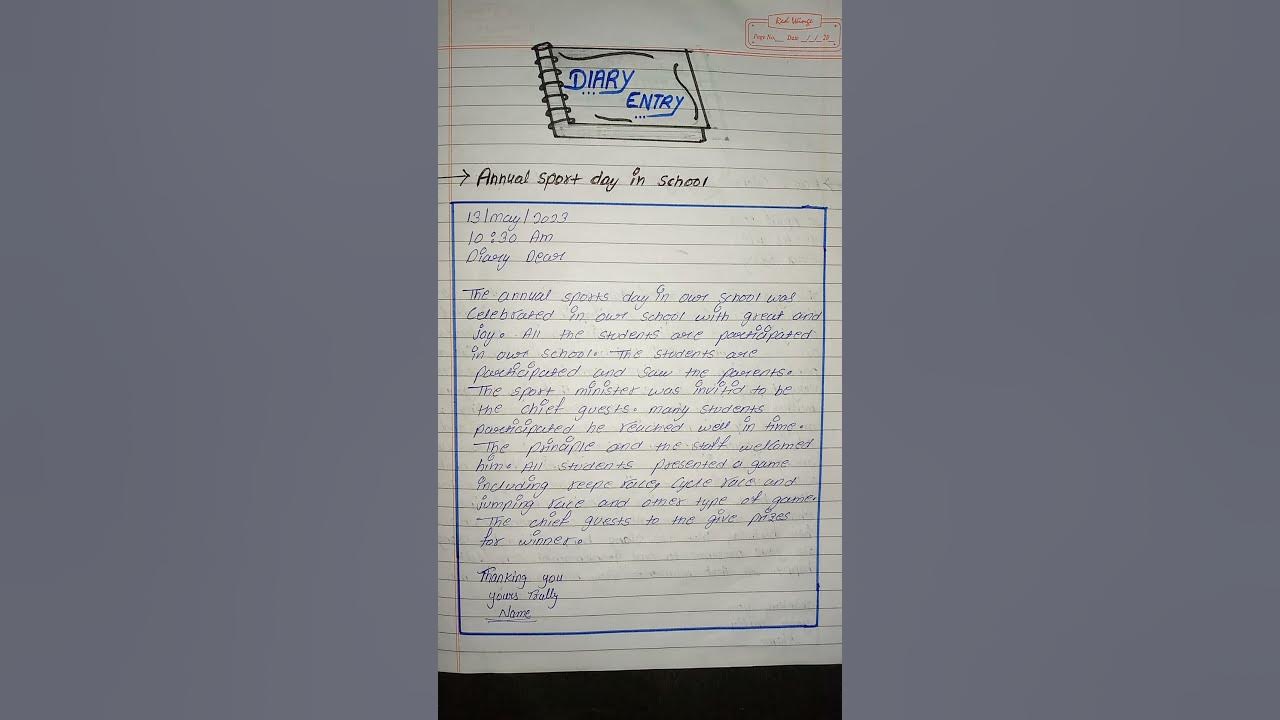 Red Wings
Page No. Date / / 20
DIARY
ENTRY
→ Annual sport day in school
13/may/2023
10:30 Am
Diary Dear
The annual sports day in our school was
celebrated in our school with great and
joy. All the students are participated
in our school. The students are
participated and saw the parents.
The sport minister was invitid to be
the chief guests. many students
participated he reached well in time.
The prinaiple and the staff wellcomed
him. All students presented a game
including race, cycle race and
jumping race and other type of game.
The chief guests to the give prizes
for winner.
Thanking you
yours Trully
Name